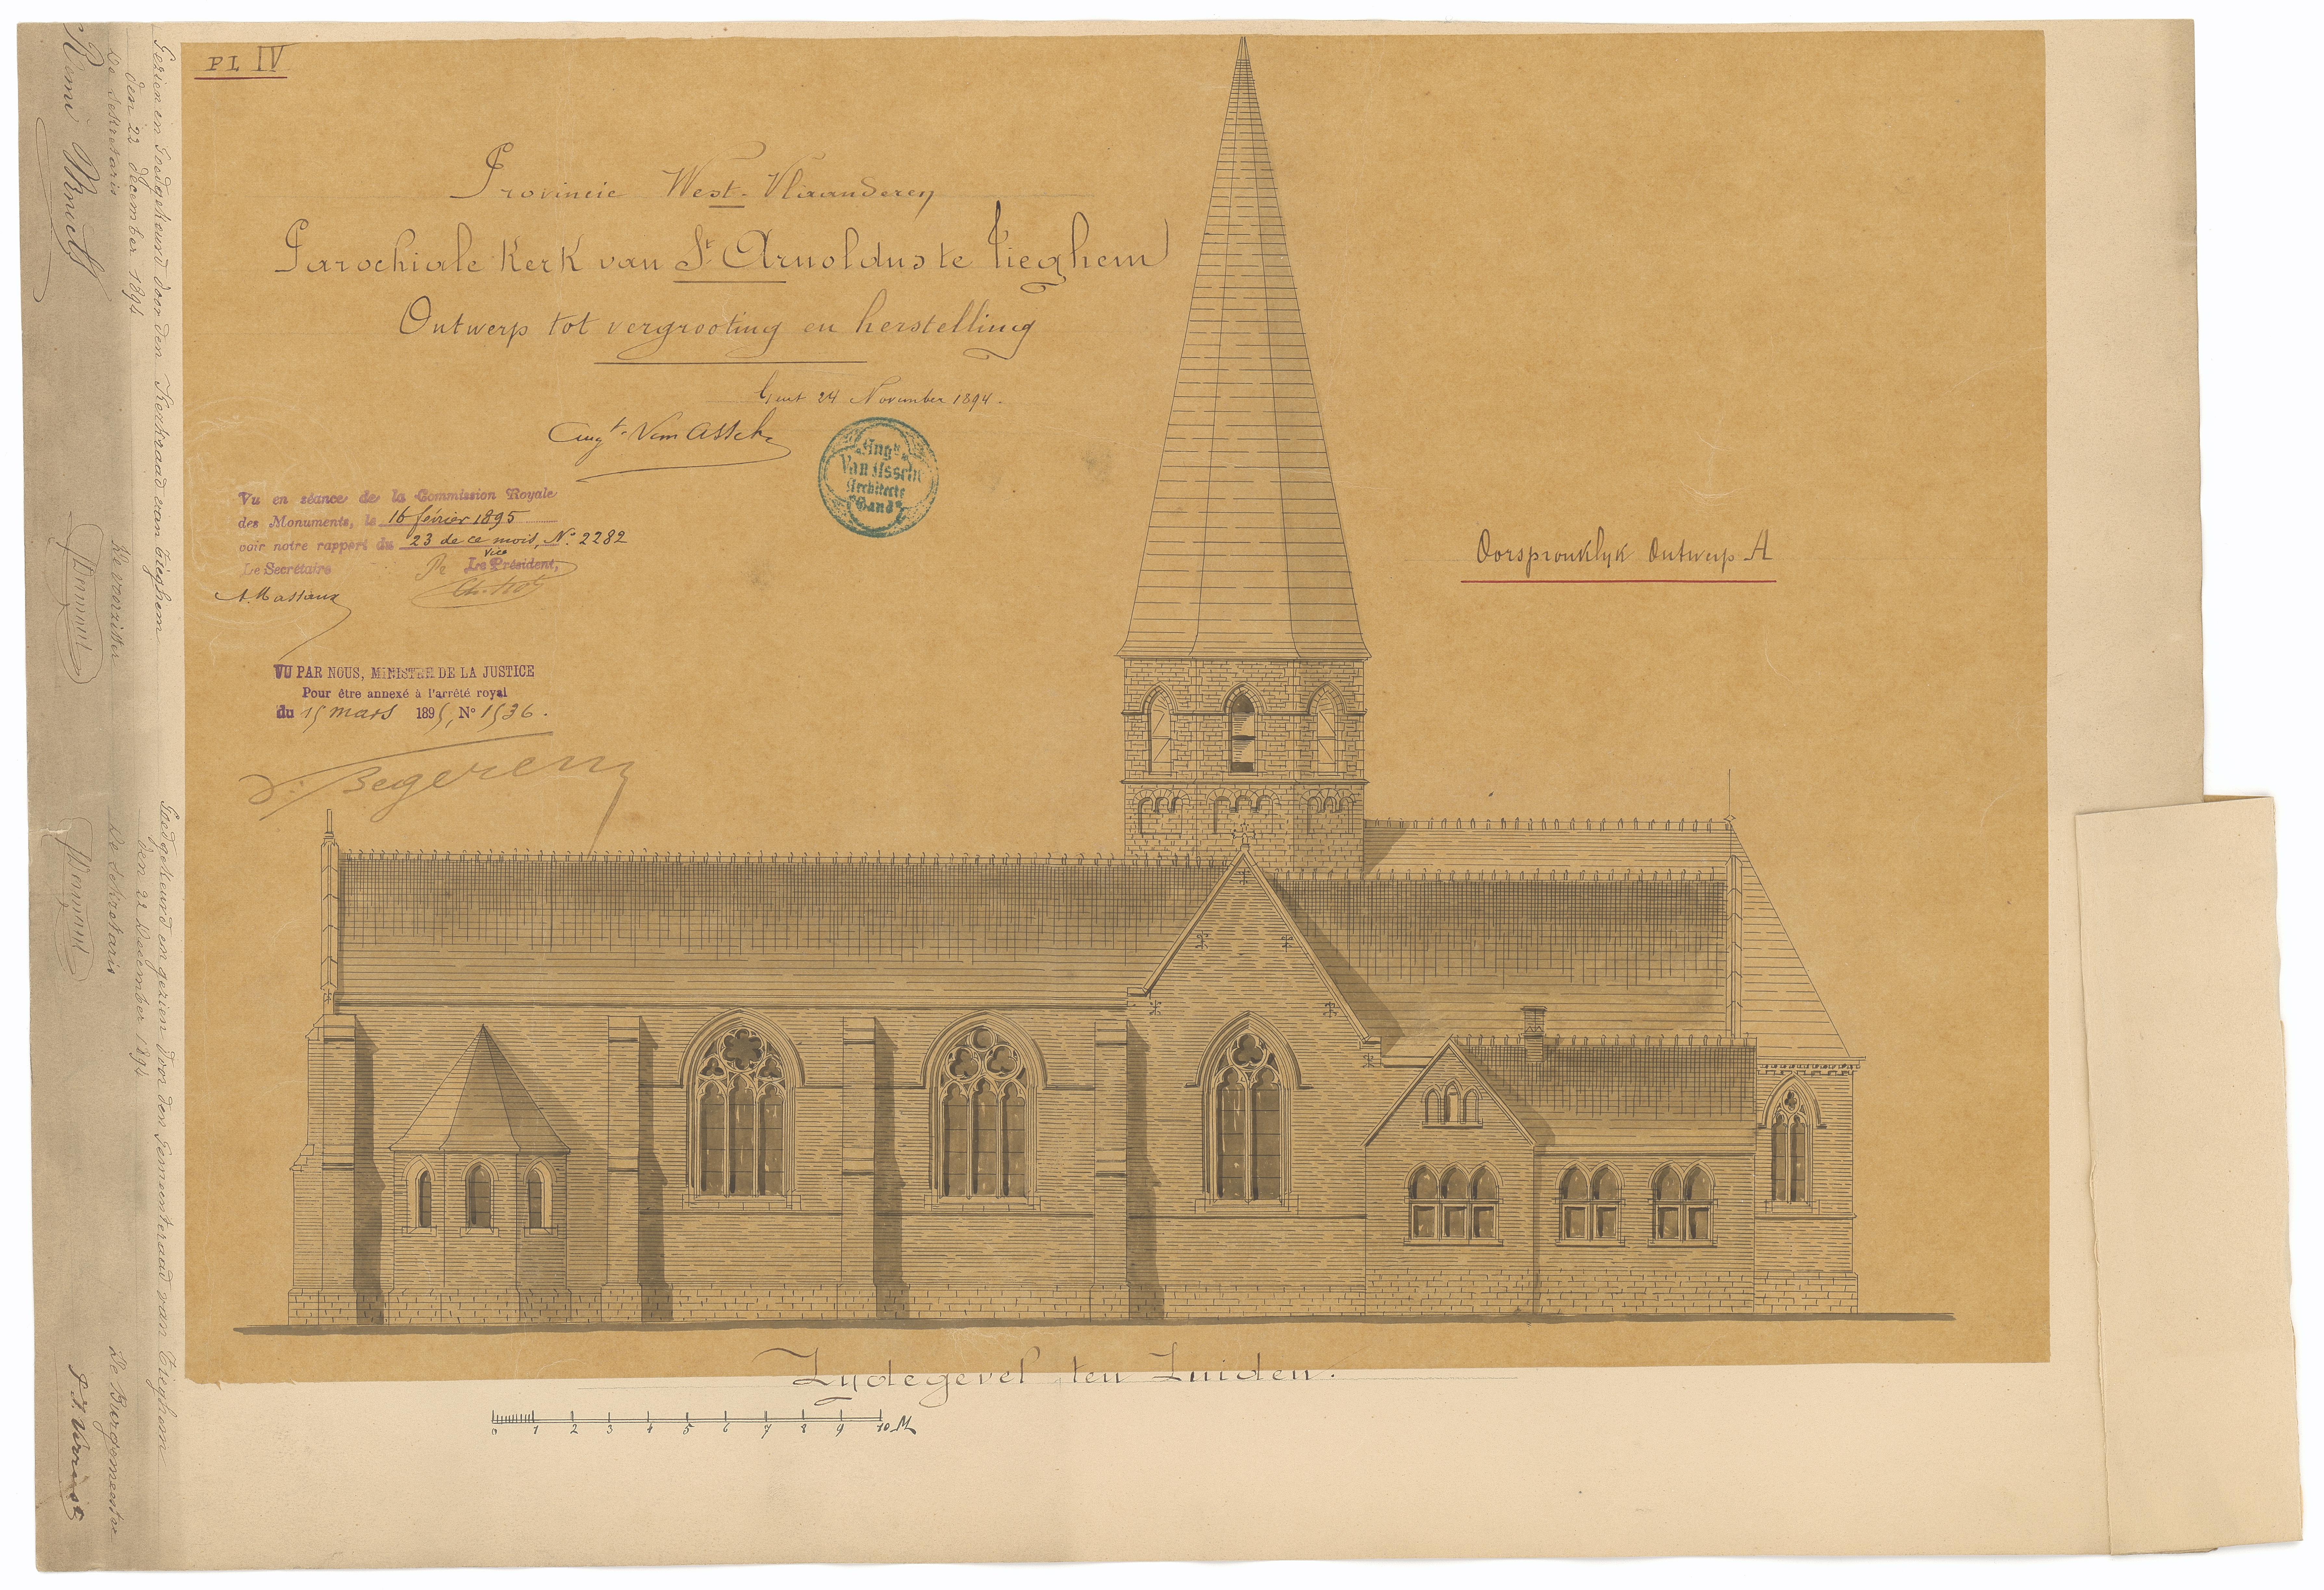 PL IV
Provincie West-Vlaanderen
Parochiale Kerk van St Arnoldus te Tieghem
Ontwerp tot vergrooting en herstelling
Gent 24 November 1894.
Augt Van Assche
Augte
Van Assche
Architecte
Gand
Vu en séance de la Commission Royale
des Monuments, le 16 février 1895
voir notre rapport du 23 de ce mois, No 2282
Le Secrétaire
Vice
Le Président,
A. Massaux
VU PAR NOUS, MINISTRE DE LA JUSTICE
Pour être annexé à l'arrêté royal
du 15 mars 1895, No 1536.
V. Begerem
Oorspronklyk Ontwerp A
Zydegevel ten Zuiden.
0 1 2 3 4 5 6 7 8 9 10 M
Gezien en Goedgekeurd door den Kerkraad van Tieghem
den 22 december 1894
De sekretaris
De voorzitter
Remi
Goedgekeurd en gezien door den Gemeenteraad van Tieghem
den 22 December 1894
De Sekretaris
De Burgemeester